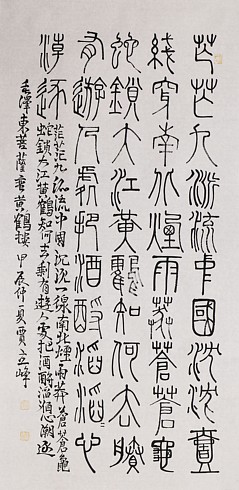 茫茫九派流中國沈沈壹
綫穿南北煙雨莽蒼蒼龜
蛇鎖大江黃鶴知何去賸
有遊人處把酒酹滔滔心
潮逐
茫茫九派流中國沈沈一線南北煙雨莽蒼蒼龜
蛇鎖大江黃鶴知何去剩有遊人處把酒酹滔滔心潮逐
毛澤東菩薩蠻黃鶴樓 甲辰仲夏賈立峰